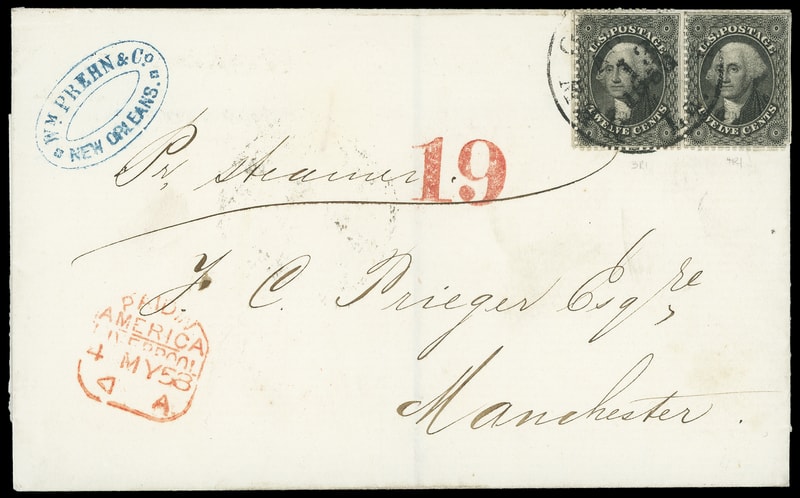 Wm PREHN & Co
NEW ORLEANS.
U.S. POSTAGE
TWELVE CENTS
U.S. POSTAGE
TWELVE CENTS
3R1
4R1
Pr steamer.
19
F. C. Prieger Esqre
Manchester.
PAID IN
AMERICA
LIVERPOOL
4 MY 58
A